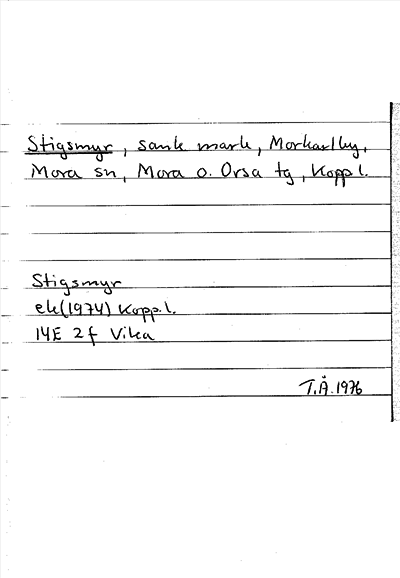 Stigsmyr, sank mark, Morkarlby,
Mora sn, Mora o. Orsa tg, Kopp l.
Stigsmyr
ek(1974) Kopp. l.
14E 2f Vika
T.Å. 1976